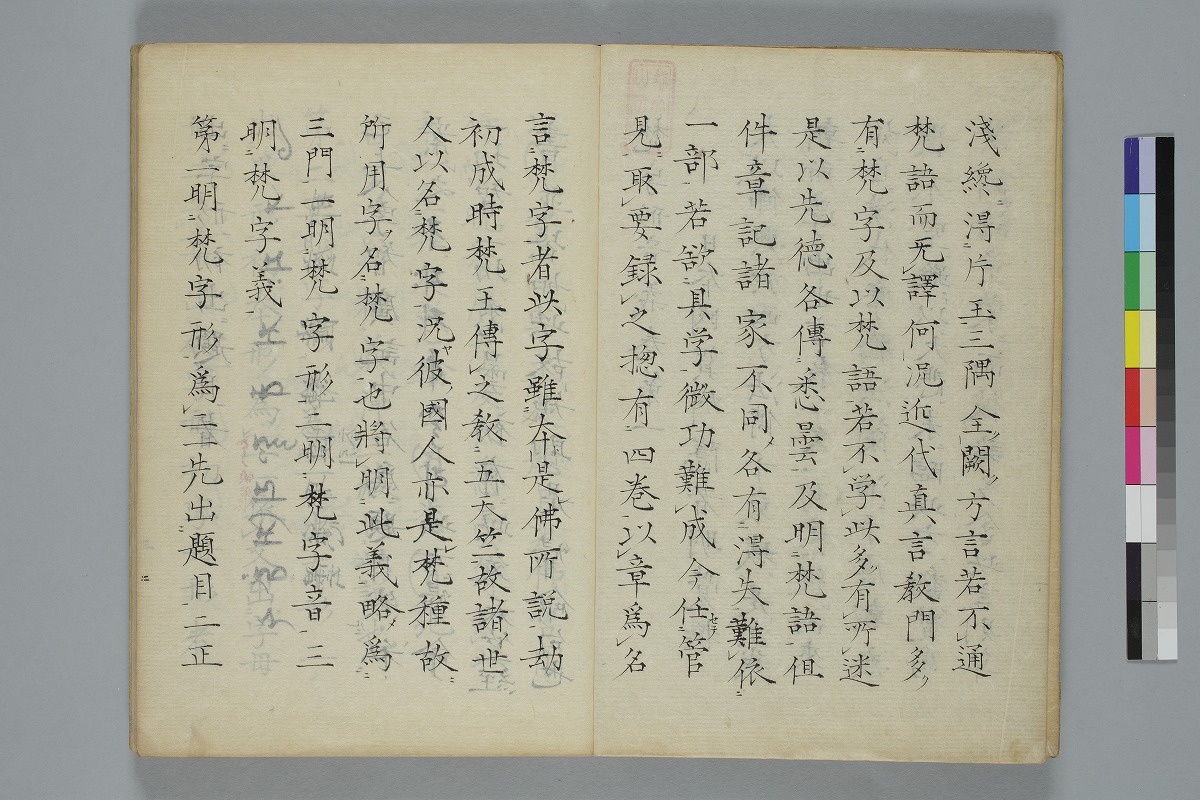 淺纔淂片玉三隅全闕方言若不通
梵語而无譯何況近代真言教門多
有梵字及以梵語若不学此多有所迷
是以先德各傳悉曇及明梵語但
件章記諸家不同各有淂失難依
一部若欲具学微功難成今任管
見取要録之揔有四卷以章爲名
言梵字者此字雖本是佛所説劫
初成時梵王傳之教五天竺故諸世
人以名梵字況彼國人亦是梵種故
所用字名梵字也將明此義略爲
三門一明梵字形二明梵字音三
明梵字義
第一明梵字形爲二先出題目二正